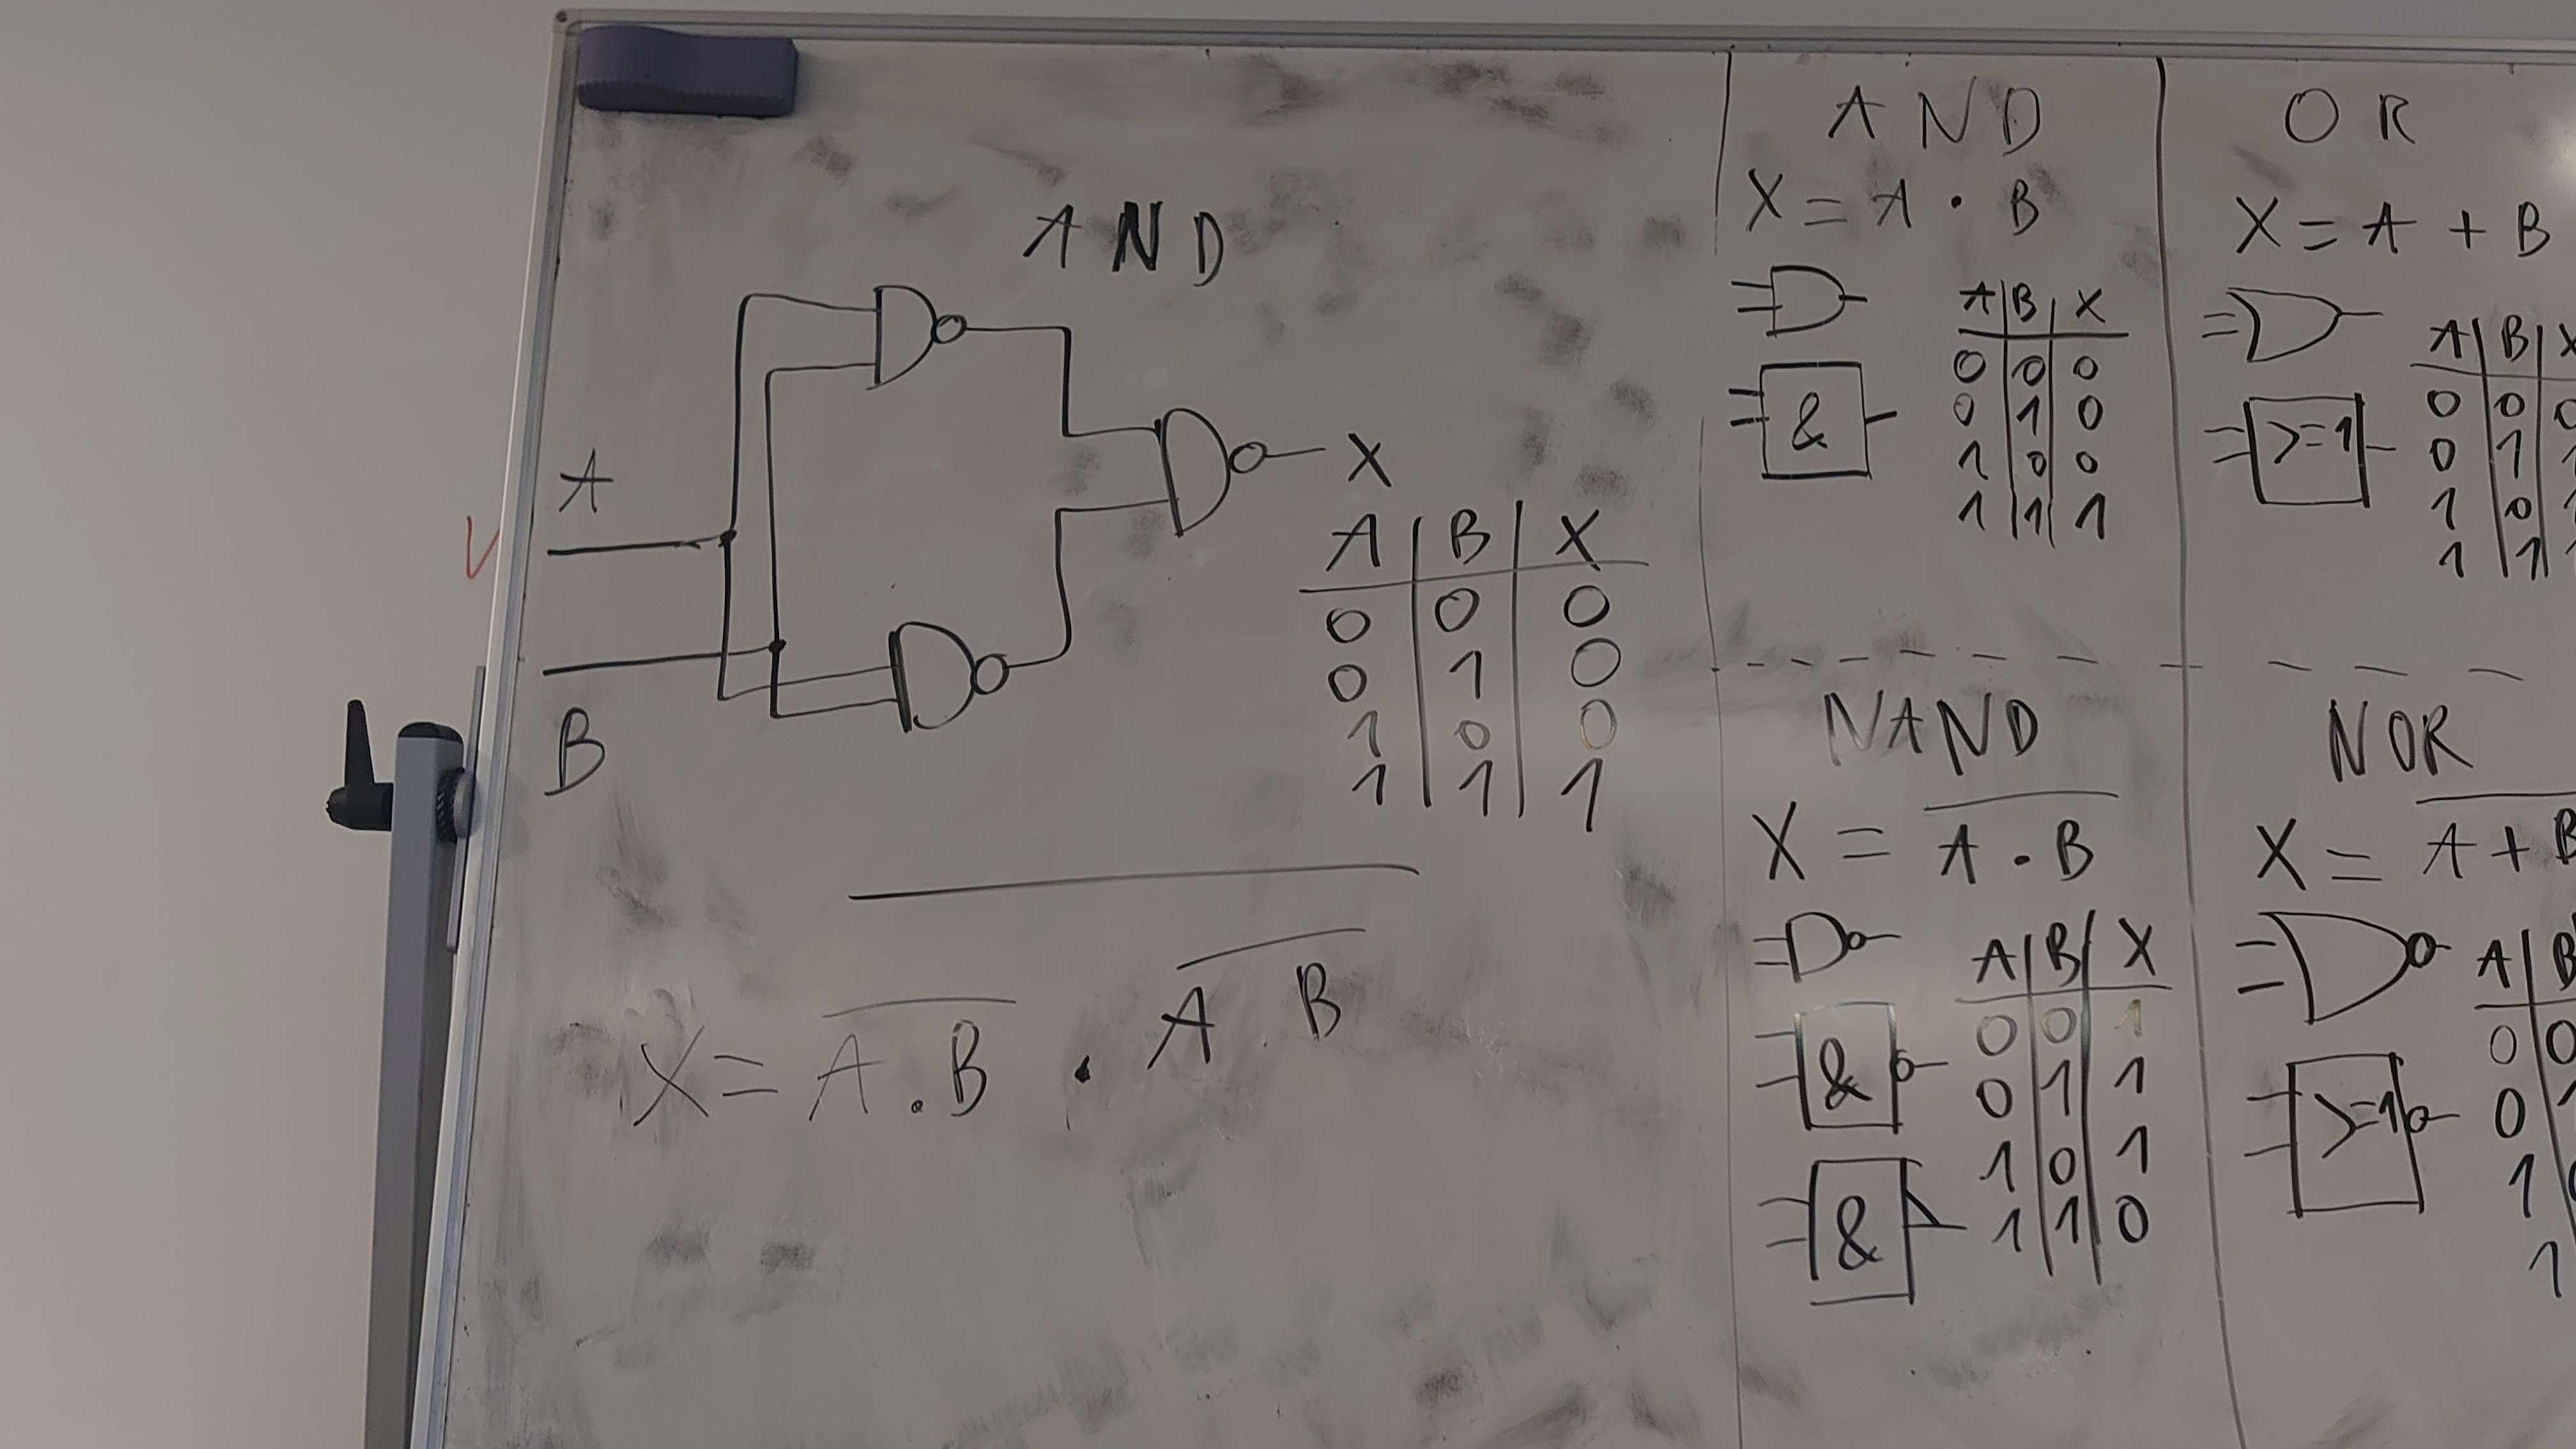 AND
A
B
X
A | B | X
0 | 0 | 0
0 | 1 | 0
1 | 0 | 0
1 | 1 | 1
X = \overline{\overline{A . B} . \overline{A . B}}
AND
X = A . B
&
A | B | X
0 | 0 | 0
0 | 1 | 0
1 | 0 | 0
1 | 1 | 1
OR
X = A + B
>=1
A | B | X
0 | 0 | 0
0 | 1 | 1
1 | 0 | 1
1 | 1 | 1
NAND
X = \overline{A . B}
&
&
A | B | X
0 | 0 | 1
0 | 1 | 1
1 | 0 | 1
1 | 1 | 0
NOR
X = \overline{A + B}
>=1
A | B
0 | 0
0 | 1
1 | 0
1